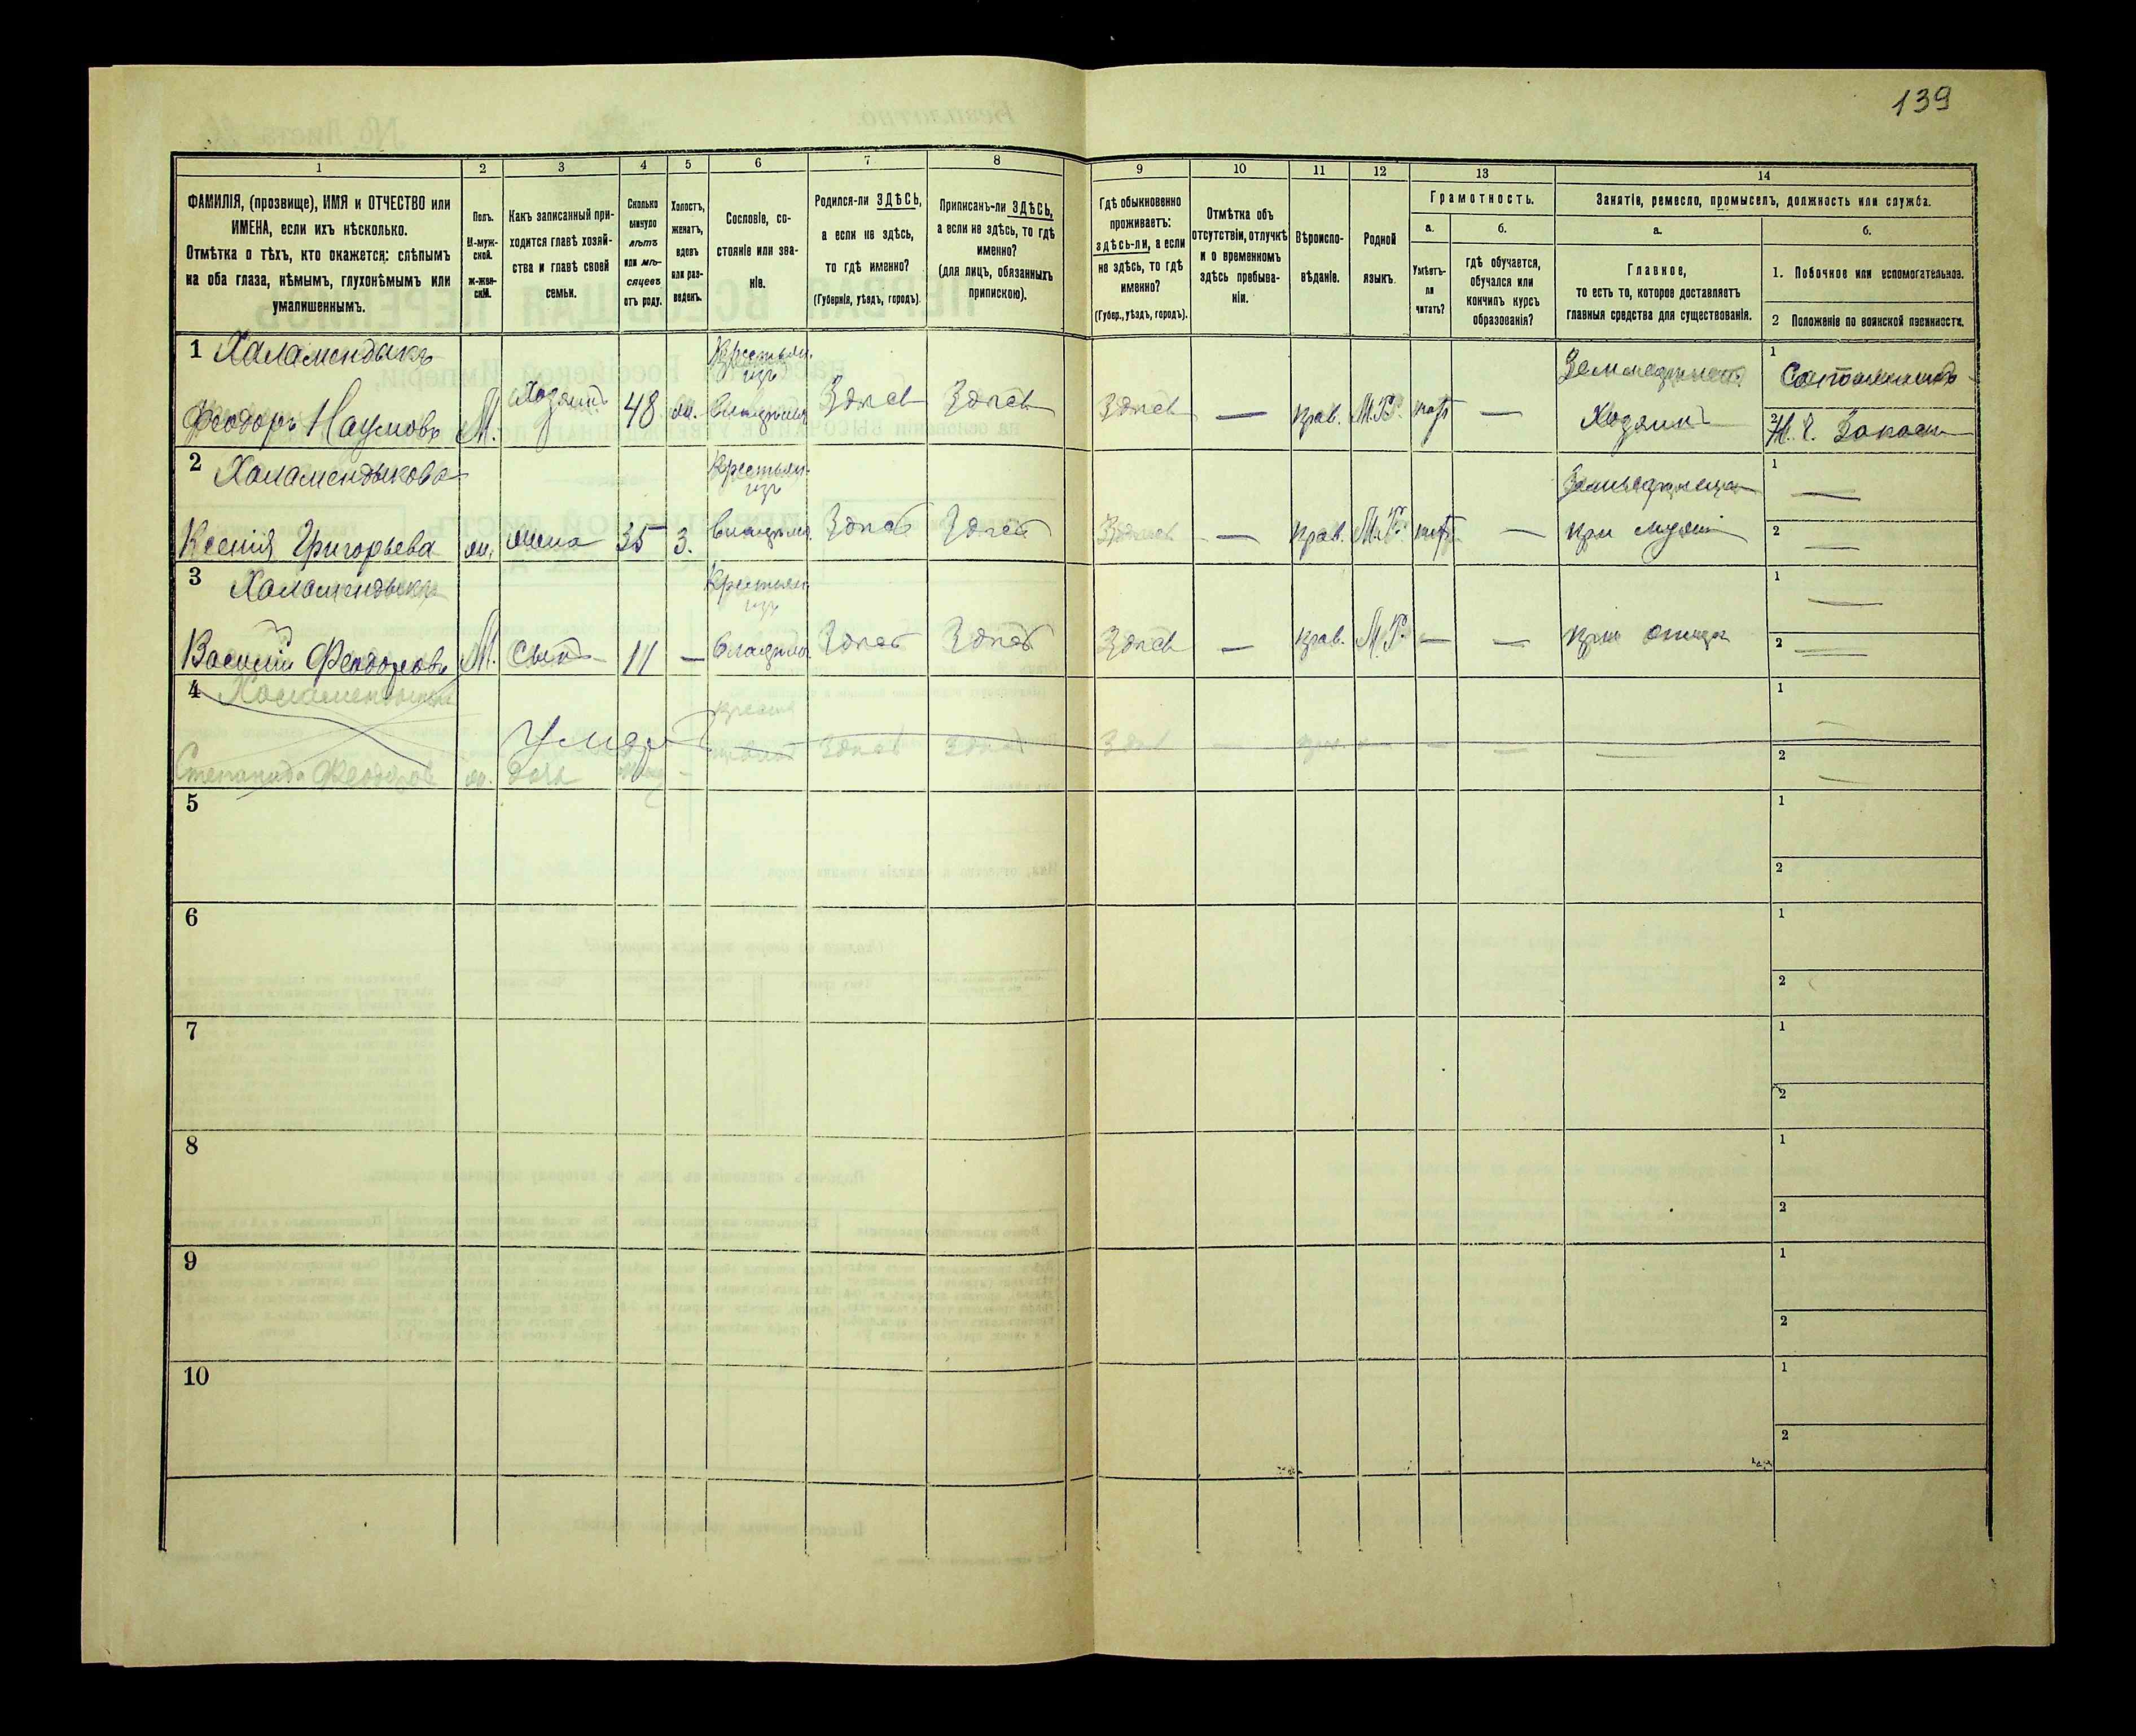 139
1 2 3 4 5 6 7 8 9 10 11 12 13 14
ФАМИЛІЯ, (прозвище), ИМЯ и ОТЧЕСТВО или
ИМЕНА, если ихъ нѣсколько.
Отмѣтка о тѣхъ, кто окажется: слѣпымъ
на оба глаза, нѣмымъ, глухонѣмымъ или
умалишеннымъ.
Полъ.
М-муж-
ской.
ж-жен-
скій.
Какъ записанный при-
ходится главѣ хозяй-
ства и главѣ своей
семьи.
Сколько
минуло
лѣтъ
или мѣ-
сяцевъ
отъ роду.
Холостъ,
женатъ,
вдовъ
или раз-
веденъ.
Сословіе, со-
стояніе или зва-
ніе.
Родился-ли ЗДѢСЬ,
а если не здѣсь,
то гдѣ именно?
(Губернія, уѣздъ, городъ).
Приписанъ-ли ЗДѢСЬ,
а если не здѣсь, то гдѣ
именно?
(для лицъ, обязанныхъ
припискою).
Гдѣ обыкновенно
проживаетъ:
здѣсь-ли, а если
не здѣсь, то гдѣ
именно?
(Губер., уѣздъ, городъ).
Отмѣтка объ
отсутствіи, отлучкѣ
и о временномъ
здѣсь пребыва-
ніи.
Вѣроиспо-
вѣданіе.
Родной
языкъ.
Грамотность.
а.
Умѣетъ-
ли
читать?
б.
гдѣ обучается,
обучался или
кончилъ курсъ
образованія?
Занятіе, ремесло, промыселъ, должность или служба.
а.
Главное,
то есть то, которое доставляетъ
главныя средства для существованія.
б.
1. Побочное или вспомогательное.
2 Положеніе по воинской повинности.
1 Халамендыкъ Крестьян. 1
изъ
Феодоръ Наумовъ М. Хозяинъ 48 ж. Здѣсь Здѣсь Здѣсь — прав. М.Р. — Хозяинъ 2
2 Халамендыкова Крестьян. 1 —
изъ
Ксенія Григорьева ж. жена 35 3. Здѣсь Здѣсь Здѣсь — прав. М.Р. — при мужѣ 2 —
3 Халамендыкъ Крестьян. 1 —
изъ
Василій Феодоровъ М. Сынъ 11 — Здѣсь Здѣсь Здѣсь — прав. М.Р. — — при отцѣ 2 —
4 Халамендыкъ 1 —
Степанида Феодоров ж. дочь Здѣсь Здѣсь — — — — 2 —
5 1
2
6 1
2
7 1
2
8 1
2
9 1
2
10 1
2